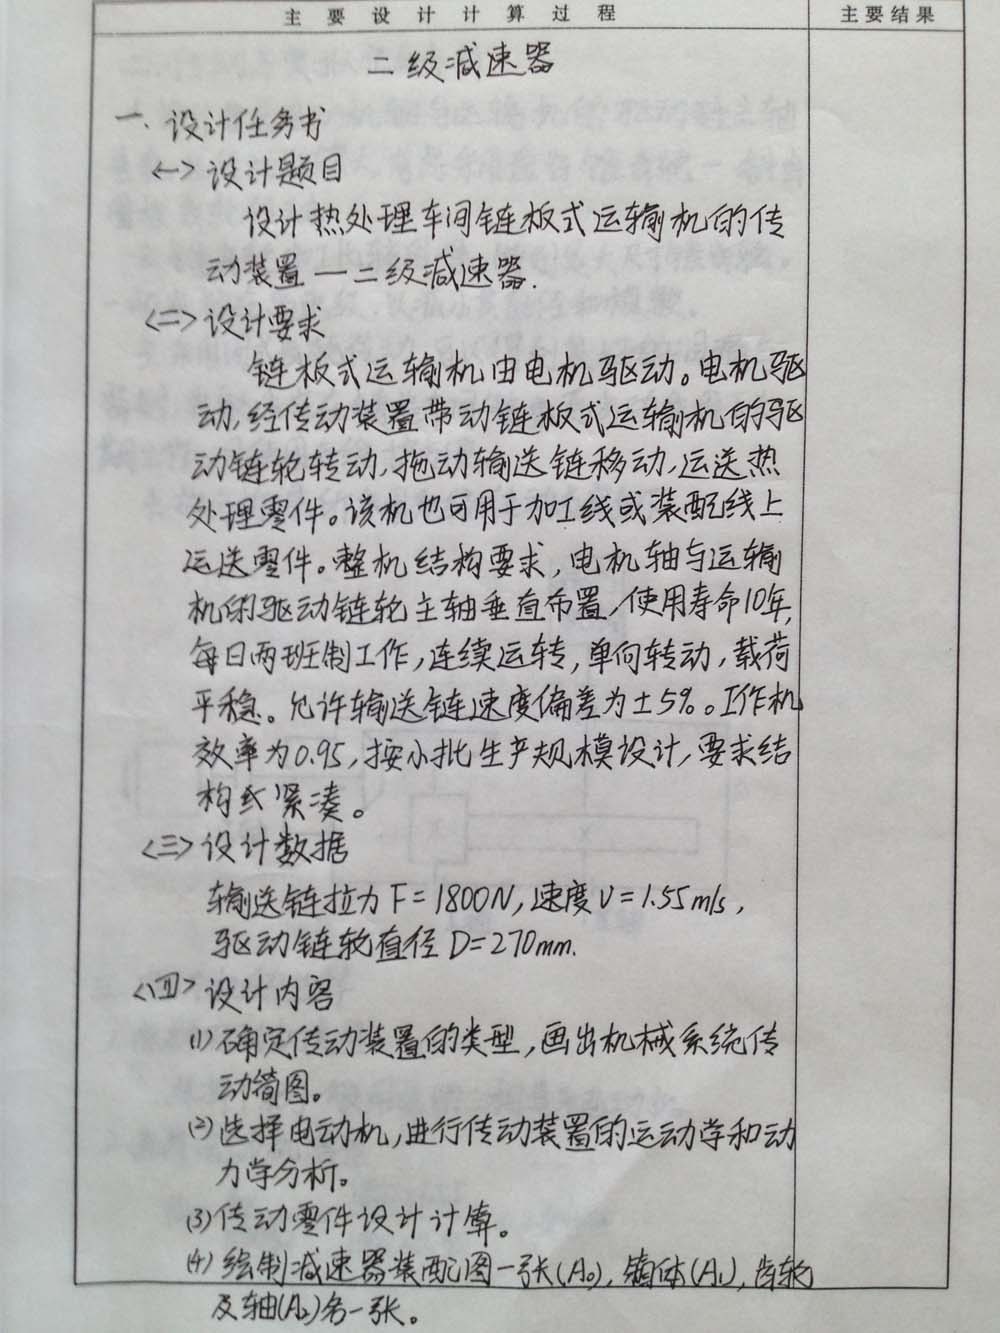 主要设计计算过程 主要结果
二级减速器
一、设计任务书
<一> 设计题目
设计热处理车间链板式运输机的传
动装置一二级减速器.
<二> 设计要求
链板式运输机由电机驱动。电机驱
动,经传动装置带动链板式运输机的驱
动链轮转动,拖动输送链移动,运送热
处理零件。该机也可用于加工线或装配线上
运送零件。整机结构要求,电机轴与运输
机的驱动链轮主轴垂直布置,使用寿命10年,
每日两班制工作,连续运转,单向转动,载荷
平稳。允许输送链速度偏差为±5%。工作机
效率为0.95,按小批生产规模设计,要求结
构紧凑。
<三> 设计数据
输送链拉力F=1800N,速度V=1.55m/s,
驱动链轮直径D=270mm.
<四> 设计内容
(1)确定传动装置的类型,画出机械系统传
动简图。
(2)选择电动机,进行传动装置的运动学和动
力学分析。
(3)传动零件设计计算。
(4)绘制减速器装配图一张(A0),箱体(A1),齿轮
及轴(A2)各一张。